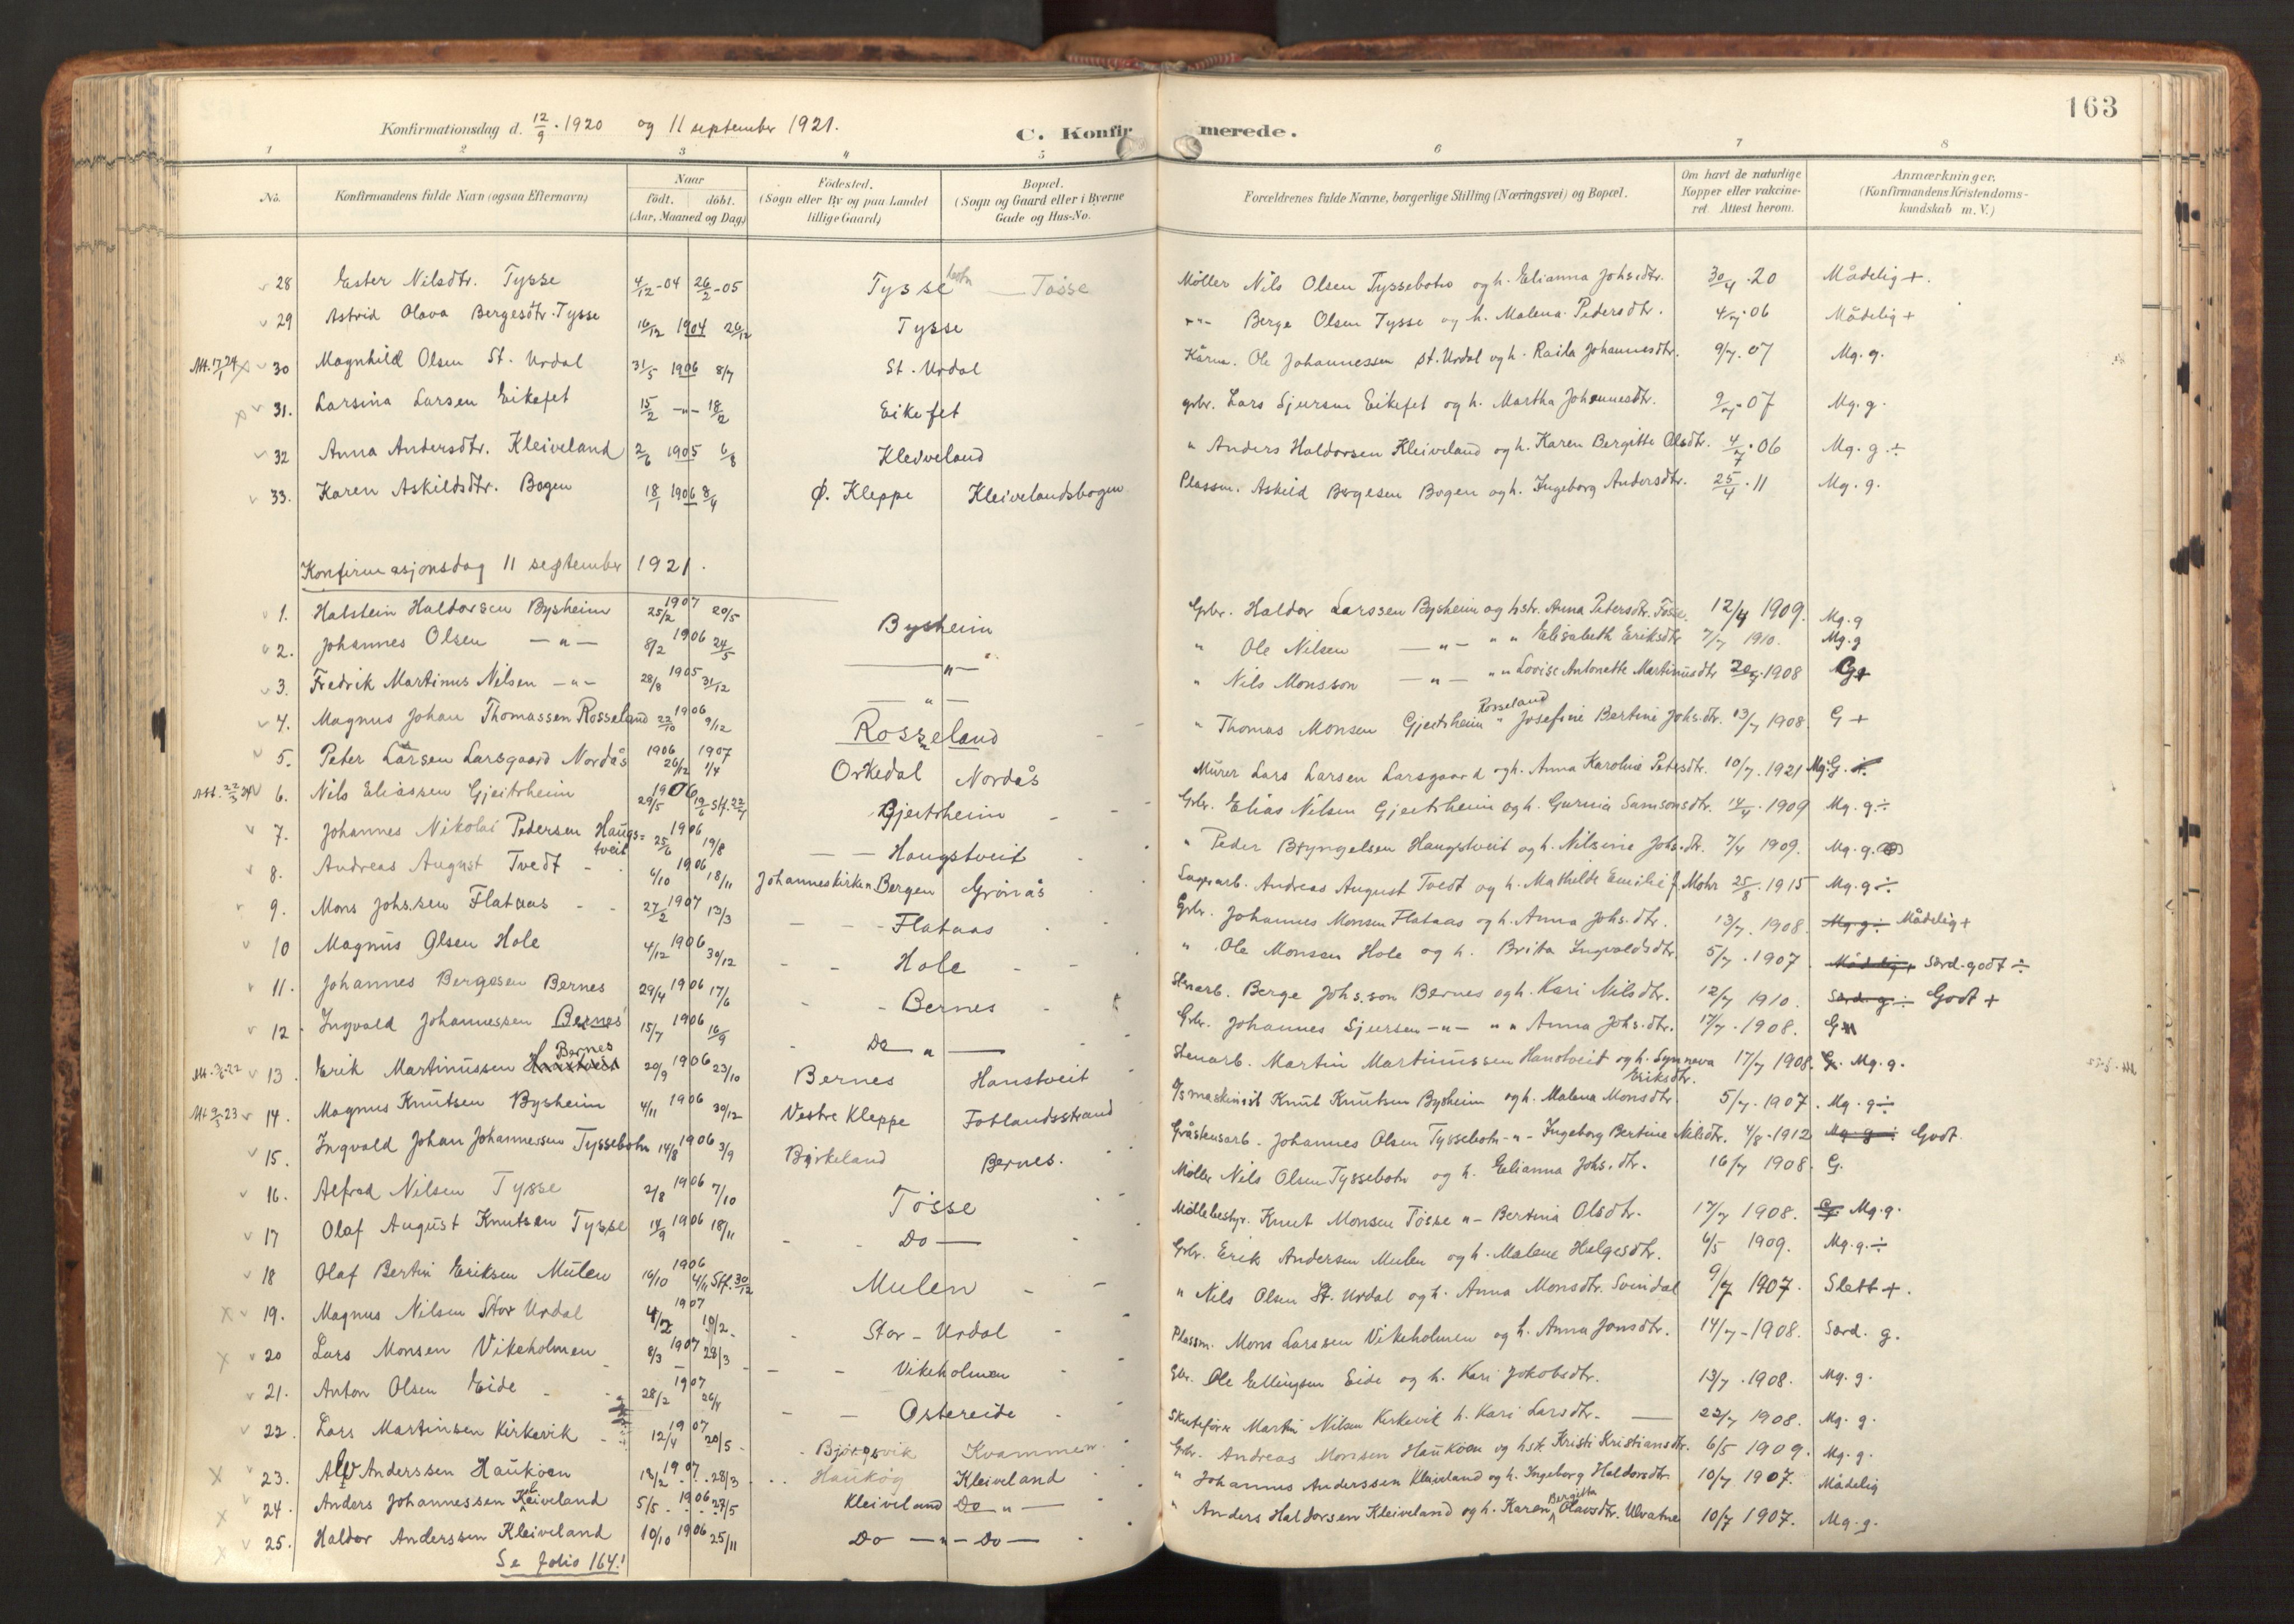 163
Konfirmationsdag d. 12/9 . 1920 og 11 september 1921.
C. Konfirmerede.
1 2 3 4 5 6 7 8
No. Konfirmandens fulde Navn (ogsaa Efternavn) Naar født. døbt. (Aar, Maaned og Dag) Fødested. (Sogn eller By og paa Landet tillige Gaard) Bopæl. (Sogn og Gaard eller i Byerne Gade og Hus-No. Forældrenes fulde Navne, borgerlige Stilling (Næringsvei) og Bopæl. Om havt de naturlige Kopper eller vakcineret. Attest herom. Anmærkninger. (Konfirmandens Kristendomskundskab m. V.)
28 Ester Nilsdtr. Tysse 4/12 - 04 26/2 - 05 Tysse botn — Tøsse Møller Nils Olsen Tyssebotn og h. Elianna Johsdtr. 30/4 . 20 Mådelig +.
29 Astrid Olava Bergesdtr. Tysse 16/12 1904 26/12 Tysse -"- Berge Olsen Tysse og h. Malena Pedersdtr. 4/7 . 06 Mådelig +
30 Magnhild Olsen St. Urdal 31/5 1906 8/7 St. Urdal Kårm. Ole Johannessen St. Urdal og h. Raila Johannesdtr. 9/7. 07 Mg. g.
31. Larsina Larsen Eikefet 15/2 -"- 18/2 Eikefet grbr. Lars Sjursen Eikefet og h. Martha Johannesdtr. 9/7 . 07 Mg. g.
32 Anna Andersdtr. Kleiveland 2/6 1905 6/8 Kleiveland " Anders Haldorsen Kleiveland og h. Karen Bergitte Olsdtr. 4/7 . 06 Mg. g. ÷
33. Karen Askildsdtr. Bogen 18/1 1906 8/4 Ø. Kleppe Kleivelandsbogen Plassm. Askild Bergesen Bogen og h. Ingeborg Andersdtr. 25/4 . 11 Mg. g.
Konfirmasjonsdag 11 september 1921.
1. Halstein Haldorsen Bysheim 25/2 1907 20/5 Bysheim Grbr. Haldor Larssen Bysheim og hstr. Anna Petersdtr. Fosse. 12/4 1909. Mg. g
2. Johannes Olsen -"- 8/2 1906 24/5 -"- " Ole Nilsen -"- " " Elisabeth Eriksdtr 7/7 1910. Mg. g
3. Fredrik Martinus Nilsen -"- 28/8 1905 31/12 -"- " Nils Monsson -"- " " Lovise Antonette Martinusdtr 20/7 . 1908 G+
4. Magnus Johan Thomassen Rosseland 22/10 1906 9/12 Rosseland " Thomas Monsen Gjeitrheim Rosseland " Josefine Bertine Johs.dtr. 13/7 1908. G +
5. Peter Larsen Larsgaard Nordås 1906 26/12 1907 1/4 Orkedal Nordås Murer Lars Larsen Larsgaard og h. Anna Karoline Petersdtr. 10/7. 1921 Mg. G.
6. Nils Eliassen Gjeitrheim 29/5 1906 Gjeitrheim Grbr. Elias Nilsen Gjeitrheim og h. Gurina Samsonsdtr. 14/4 . 1909 Mg. g. ÷
7. Johannes Nikolai Pedersen Haugstveit 25/6 1906 19/8 — — Haugstveit " Peder Bryngelsen Haugstveit og h. Nilsine Johs.dtr. 7/4 1909. Mg. g.
8. Andreas August Tvedt 6/10 1906 18/11 Johanneskirken Bergen Grønås Andreas August Tvedt og h. Mathilde Emilie f. Mohr 25/8 . 1915 Mg. g ÷
9. Mons Johs.sen Flataas 27/2 1907 13/3 Flataas Grbr. Johannes Monsen Flataas og h. Anna Johs.dtr. 13/7. 1908. Mg. g. ÷ Mådelig +
10 Magnus Olsen Hole 4/12 1906 30/12 Hole " Ole Monsen Hole og h. Brita Ingvaldsdtr. 5/7 . 1907. Mådelig+ Særd. godt ÷
11. Johannes Bergesen Bernes 29/4 1906 17/6 Bernes Stenarb. Berge Johs.son Bernes og h. Kari Nilsdtr. 12/7 1910. Særd. g. ÷ Godt +
12. Ingvald Johannessen Bernes 15/7 1906 16/9 Do " — Grbr. Johannes Sjursen -"- " " Anna Johs.dtr. 17/7 . 1908. G
13. Erik Martinussen Bernes 20/9 1906 23/10 Bernes Hanstveit Stenarb. Martin Martinussen Hanstveit og h. Synneva Eriksdtr. 17/7 1908. G. Mg. g.
14. Magnus Knutsen Bysheim 4/11 1906 30/12 Vestre Kleppe Fotlandsstrand D/s maskinist Knut Knutsen Bysheim og h. Malena Monsdtr. 5/7 . 1907. Mg. g ÷
15. Ingvald Johan Johannessen Tyssebotn 14/8 1906 3/9 Birkeland Bernes. Gråstensarb. Johannes Olsen Tyssebotn -"- Ingeborg Bertine Nilsdtr. 4/8 - 1912 Mg. g ÷ Godt.
16. Alfred Nilsen Tysse 2/8 1906 7/10 Tøsse Møller Nils Olsen Tyssebotn og h. Elianna Johs.dtr. 16/7 1908. G.
17 Olaf August Knutsen Tysse 14/9 1906 18/11 Do — Møllebestyr. Knut Monsen Tøsse -"- Bertina Olsdtr. 17/7 1908. G. Mg. g.
18 Olaf Bertin Eriksen Mulen 16/10 1906 4/11 Stf. 30/12 Mulen Grbr. Erik Andersen Mulen og h. Malene Helgesdtr. 6/5 1909. Mg. g. ÷
19. Magnus Nilsen Stor Urdal 4/2 1907 10/2 Stor-Urdal " Nils Olsen St. Urdal og h. Anna Monsdtr. Svindal 9/7 1907. Slett +.
20 Lars Monsen Vikeholmen 8/3 1907 28/3 Vikeholmen Plassm. Mons Larssen Vikeholmen og h. Anna Jonsdtr. 14/7 - 1908. Særd. g.
21. Anton Olsen Eide 28/2 1907 26/4 Ostereide Gbr. Ole Ellingsen Eide og h. Kari Jokobsdtr. 13/7 . 1908. Mg. g.
22. Lars Martinsen Kirkevik 12/4 1907 20/5 Bjørgsvik Kvammen Skutefører Martin Nilsen Kirkevik h. Kari Larsdtr. — 22/7 1908. Mg. g.
23. Alv Anderssen Haukøen 18/2 1907 28/3 Haukøy Kleiveland Grbr. Andreas Monsen Haukøen og hstr. Kristi Kristiansdtr. 6/5 1909. Mg. g.
24. Anders Johannessen Kleiveland 5/5 1906 27/5 Kleiveland Do " — " Johannes Anderssen Kleiveland og h. Ingeborg Haldorsdtr. 10/7 1907. Mådelig
25. Haldor Anderssen Kleiveland 10/10 1906 25/11 Do -"- Do — " Anders Haldorsen Kleiveland og h. Karen Bergitta Olavsdtr. Ulvatne 10/7 1907. Mg. g.
Se folio 164!